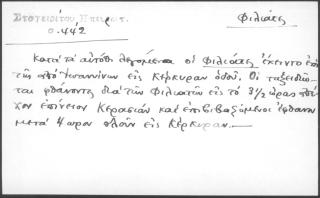 Στογειρίτου Ηπειρωτ.
σ. 442
Φιλιάτες
Κατά τα αυτόθι λεγόμενα οι Φιλιάτες έκειντο επί
της από Ιωαννίνων εις Κέρκυραν οδού. Οι ταξειδιώ-
ται φθάνοντες δια των Φιλιατών εις το 3 1/2 ώρας απέ-
χον επίνειον Κερασιάν και επιβιβαζόμενοι έφθανον
μετά 4ωρον πλούν εις Κέρκυραν.